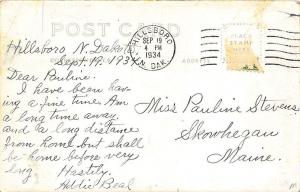 POST CARD
HILLSBORO
SEP 19
4 PM
1934
N. DAK.
PLACE
STAMP
Hillsboro N. Dakota
Sept. 19. 1934
Dear Pauline.
I have been hav-
ing a fine time. Am
a long time away,
and a long distance
from home but shall
be home before very
long. Hastily,
Addie Beal
Miss Pauline Stevens
Skowhegan
Maine.